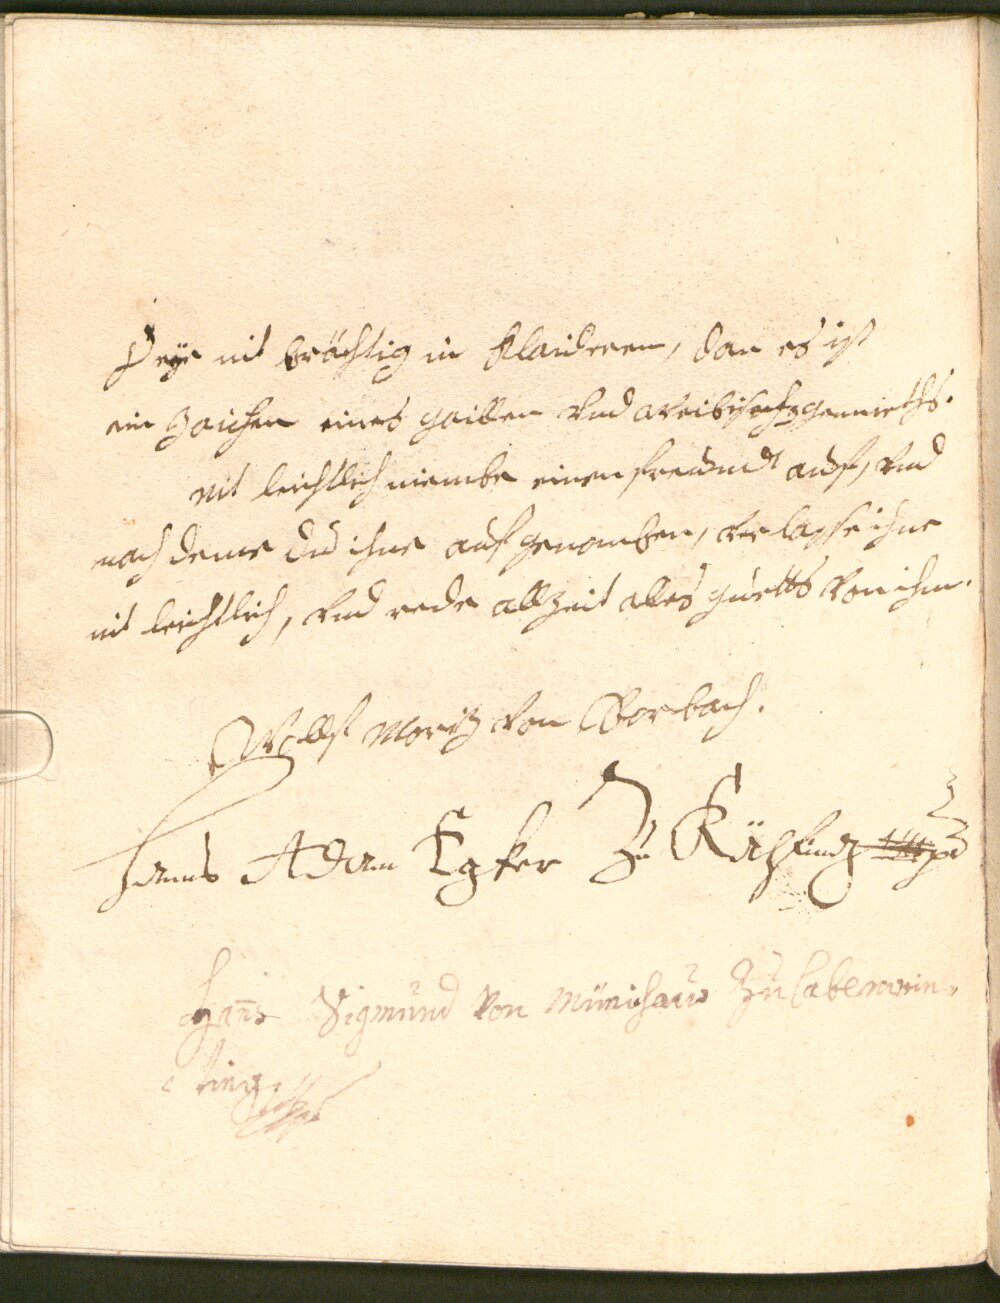 Seye nit brächtig in Klaideren, dan es ist
ein Zaichen eines gaillen vnd weibischen gemieths.
nit leichtlich niembe einen freundt auf, vnd
nach deme du ihne aufgenomben, verlasse ihne
nit leichtlich, vnd rede allzeit alles guetts von ihm.
Wolff Moritz von
Hanns Adam Egker Zu Käpfing
Hanns Sigmund von Münichaw Zu Laberwein-
ting